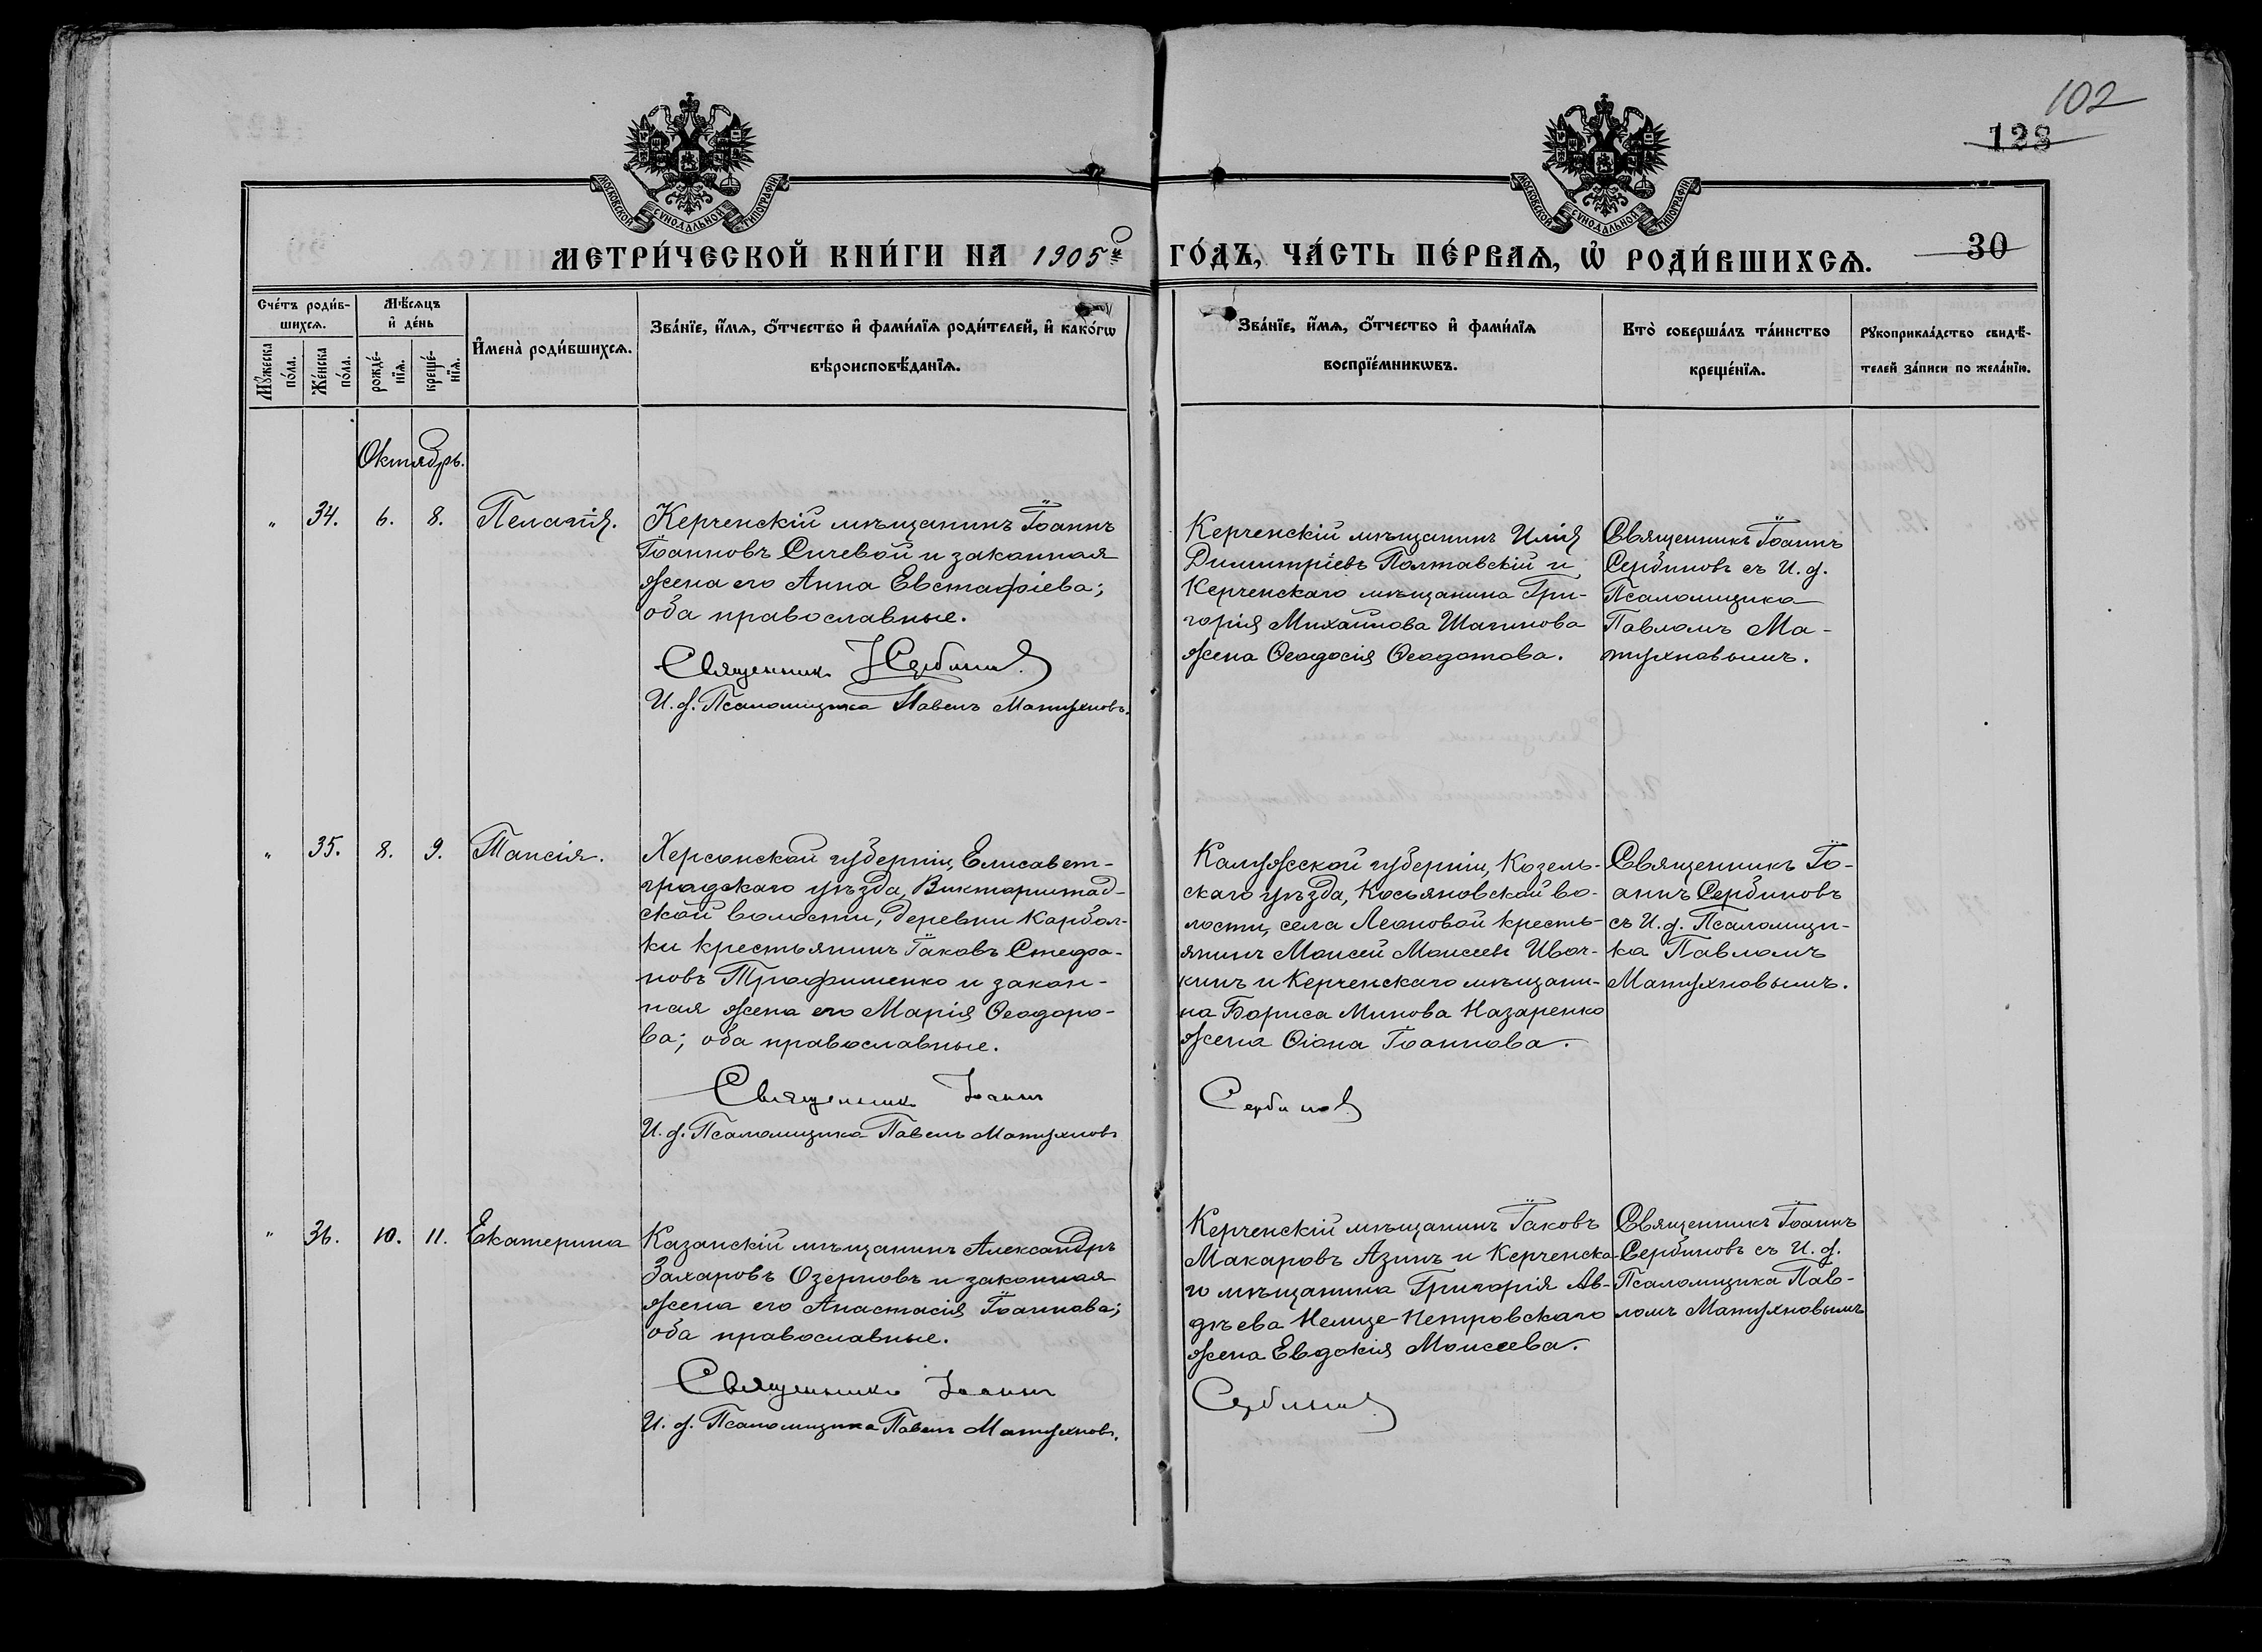 102
128
МОСКОВСКОЙ СУНОДАЛЬНОЙ ТИПОГРАФІИ
МОСКОВСКОЙ СУНОДАЛЬНОЙ ТИПОГРАФІИ
МЕТРИ́ЧЕСКОЙ КНИ́ГИ НА 1905й
ГО́ДЪ, ЧА́СТЬ ПЕ́РВАѦ, Ѡ҆ РОДИ́ВШИХСѦ.
30
Сче́тъ роди́в-
шихсѧ.
Мѣ́сѧцъ
и҆ де́нь
Мꙋ́жеска
по́ла.
Же́нска
по́ла.
рожде́-
нїѧ.
креще́-
нїѧ.
И҆мена̀ роди́вшихсѧ.
Зва́нїе, и҆́мѧ, ѻ҆́тчество и҆ фами́лїѧ роди́телей, и҆ како́гѡ
вѣроисповѣ́данїѧ.
Зва́нїе, и҆́мѧ, ѻ҆́тчество и҆ фами́лїѧ
воспрїе́мникѡвъ.
Кто̀ соверша́лъ та́инство
креще́нїѧ.
Рꙋкоприкла́дство свидѣ́-
телей за́писи по жела́нїю.
Октябрь.
" 34. 6. 8. Пелагія.
Керченскій мѣщанинъ Іоаннъ
Іоанновъ Сичевой и законная
жена его Анна Евстафіева;
оба православные.
Священникъ І Сербиновъ
И. д. Псаломщика Павелъ Матухновъ.
Керченскій мѣщанинъ Илія
Димитріевъ Полтавскій и
Керченскаго мѣщанина Гри-
горія Михаилова Шатнова
жена Ѳеодосія Ѳеодотова.
Священникъ Іоаннъ
Сербиновъ съ И. д.
Псаломщика
Павломъ Ма-
тухновымъ.
" 35. 8. 9. Таисія.
Херсонской губерніи, Елисавет-
градскаго уѣзда, Викторштад-
ской волости, деревни Карбол-
ки крестьянинъ Іаковъ Стефа-
новъ Трофименко и закон-
ная жена его Марія Ѳеодоро-
ва; оба православные.
Священникъ Іоаннъ
И. д. Псаломщика Павелъ Матухновъ
Калужской губерніи, Козель-
скаго уѣзда, Косьяновской во-
лости, села Леоновой кресть-
янинъ Моисей Моисеевъ Ивоч-
кинъ и Керченскаго мѣщани-
на Бориса Минова Назаренко
жена Ѳіона Іоаннова.
Сербиновъ
Священникъ Іо-
аннъ Сербиновъ
съ И. д. Псаломщи-
ка Павломъ
Матухновымъ.
" 36. 10. 11. Екатерина
Казанскій мѣщанинъ Александръ
Захаровъ Озерновъ и законная
жена его Анастасія Іоаннова;
оба православные.
Священникъ Іоаннъ
И. д. Псаломщика Павелъ Матухновъ.
Керченскій мѣщанинъ Іаковъ
Макаровъ Азинъ и Керченска-
го мѣщанина Григорія Ав-
дѣева Нелице-Петровскаго
жена Евдокія Моисеева.
Сербиновъ
Священникъ Іоаннъ
Сербиновъ съ И. д.
Псаломщика Пав-
ломъ Матухновымъ